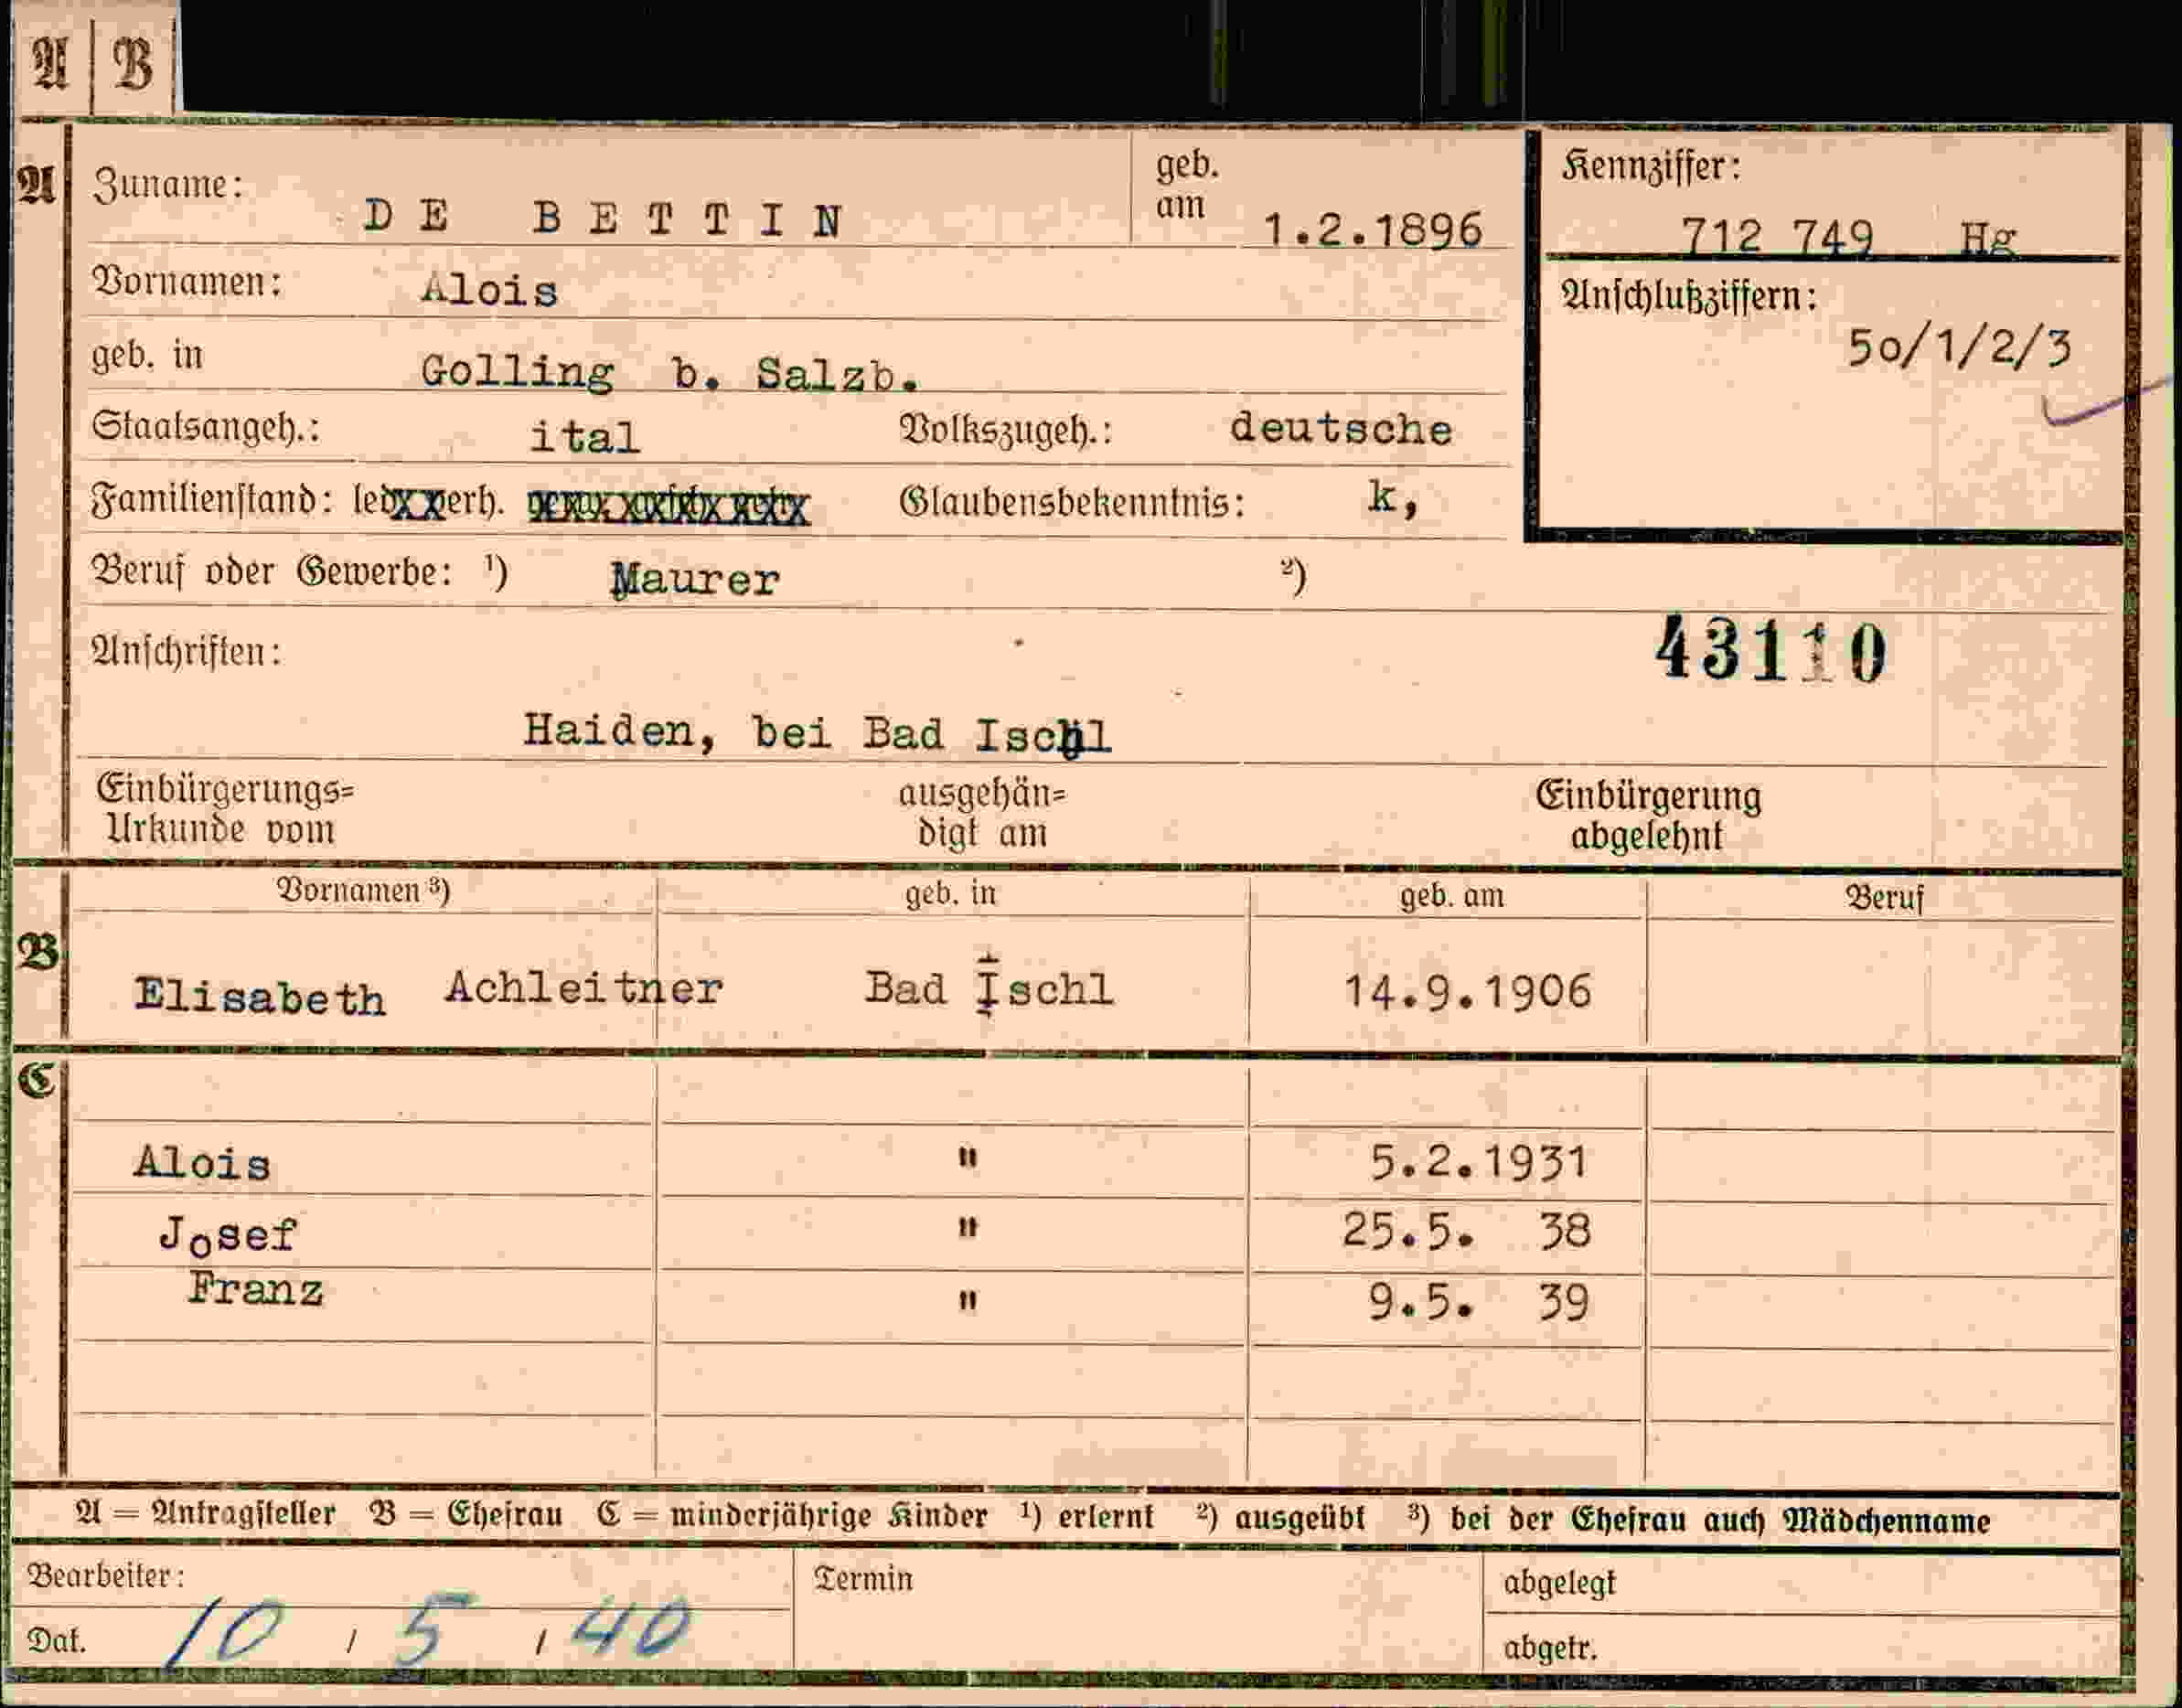 A B
A Zuname: DE BETTIN geb. am 1.2.1896
Kennziffer:
712 749 Hg
Vornamen: Alois
Anschlußziffern:
50/1/2/3
geb. in Golling b. Salzb.
Staatsangeh.: ital Volkszugeh.: deutsche
Familienstand: verh. Glaubensbekenntnis: k,
Beruf oder Gewerbe: ¹) Maurer ²)
Anschriften: 43110
Haiden, bei Bad Ischl
Einbürgerungs= ausgehän= Einbürgerung
Urkunde vom digt am abgelehnt
Vornamen ³) geb. in geb. am Beruf
B Elisabeth Achleitner Bad Ischl 14.9.1906
C
Alois " 5.2.1931
Josef " 25.5. 38
Franz " 9.5. 39
A = Antragsteller B = Ehefrau C = minderjährige Kinder ¹) erlernt ²) ausgeübt ³) bei der Ehefrau auch Mädchenname
Bearbeiter: Termin abgelegt
Dat. 10 / 5 / 40 abgetr.